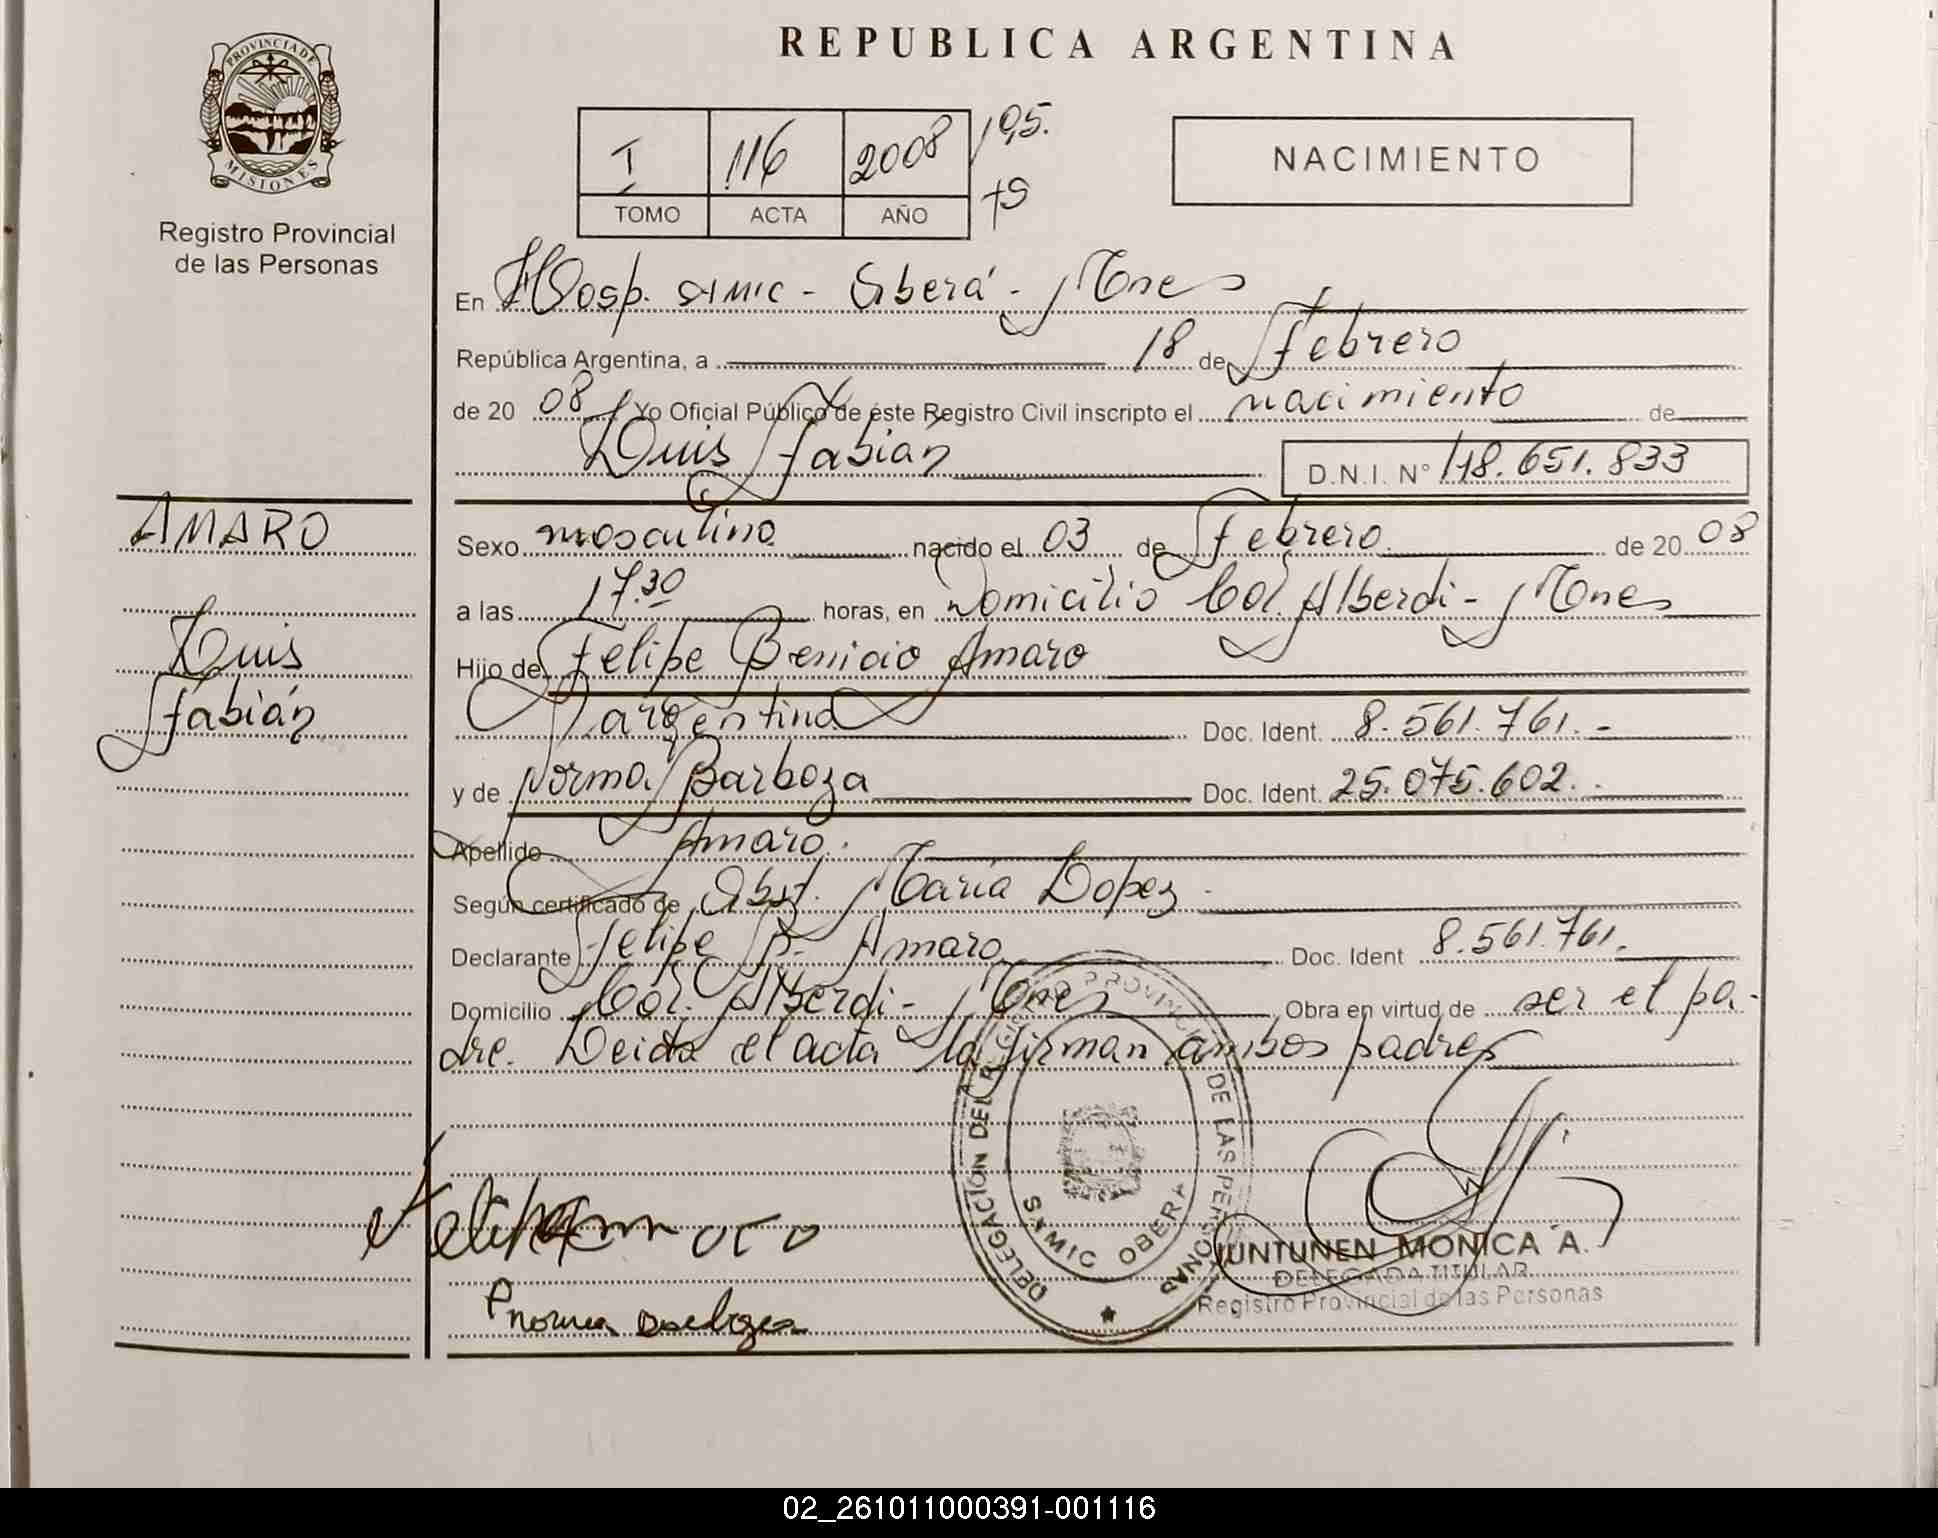 PROVINCIA DE
MISIONES
Registro Provincial
de las Personas
REPUBLICA ARGENTINA
I 116 2008 195.
TOMO ACTA AÑO
NACIMIENTO
En Hosp. SAMIC - Oberá - Mnes
República Argentina, a 18 de Febrero
de 20 08 Yo Oficial Público de éste Registro Civil inscripto el nacimiento de
Luis Fabián D.N.I. N° 48.651.833
AMARO
Luis
Fabián
Sexo masculino nacido el 03 de Febrero de 20 08
a las 17.30 horas, en Domicilio Col. Alberdi - Mnes
Hijo de Felipe Benicio Amaro
argentina Doc. Ident. 8.561.761.-
y de Norma Barboza Doc. Ident. 25.075.602.-
Apellido Amaro.
Según certificado de Obst. María Lopez
Declarante Felipe B. Amaro Doc. Ident 8.561.761.
Domicilio Col. Alberdi - Mnes Obra en virtud de ser el pa-
dre. Leida el acta la firman ambos padres
DELEGACIÓN DEL REGISTRO PROVINCIAL DE LAS PERSONAS
SAMIC OBERA
JUNTUNEN MONICA A.
DELEGADA TITULAR
Registro Provincial de las Personas
02_261011000391-001116